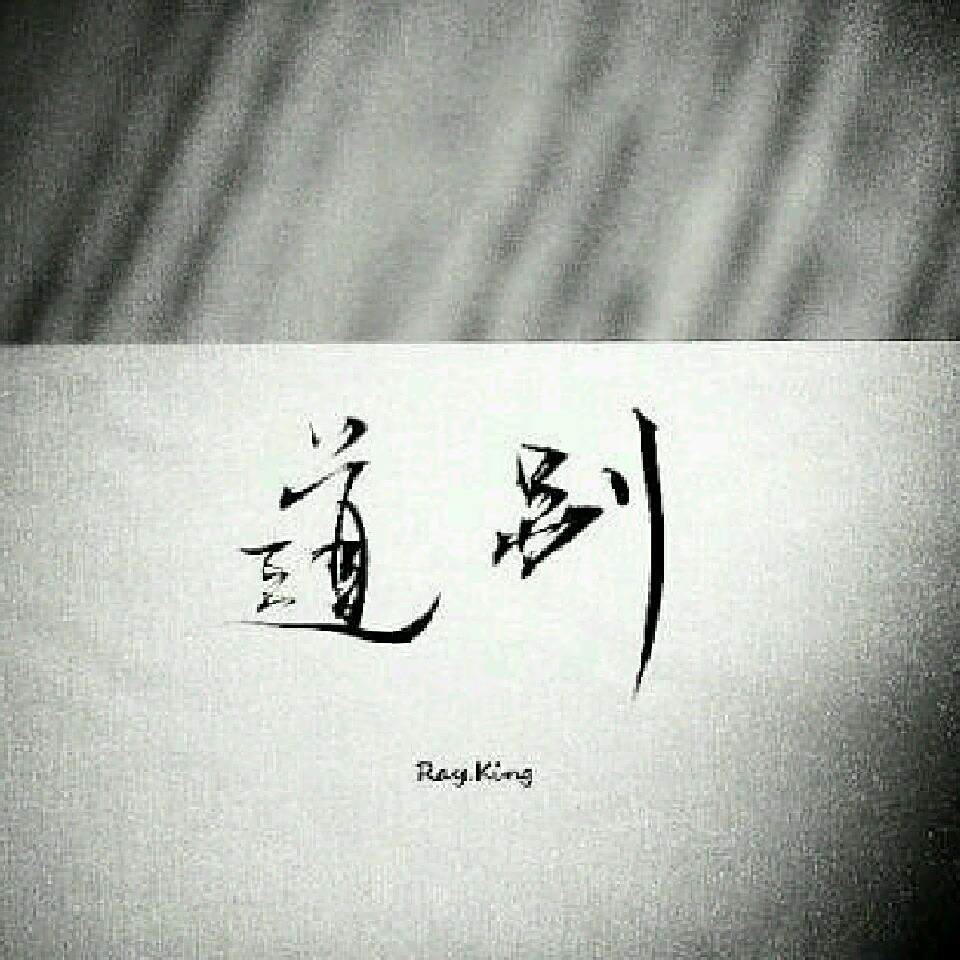 道别
Ray.King